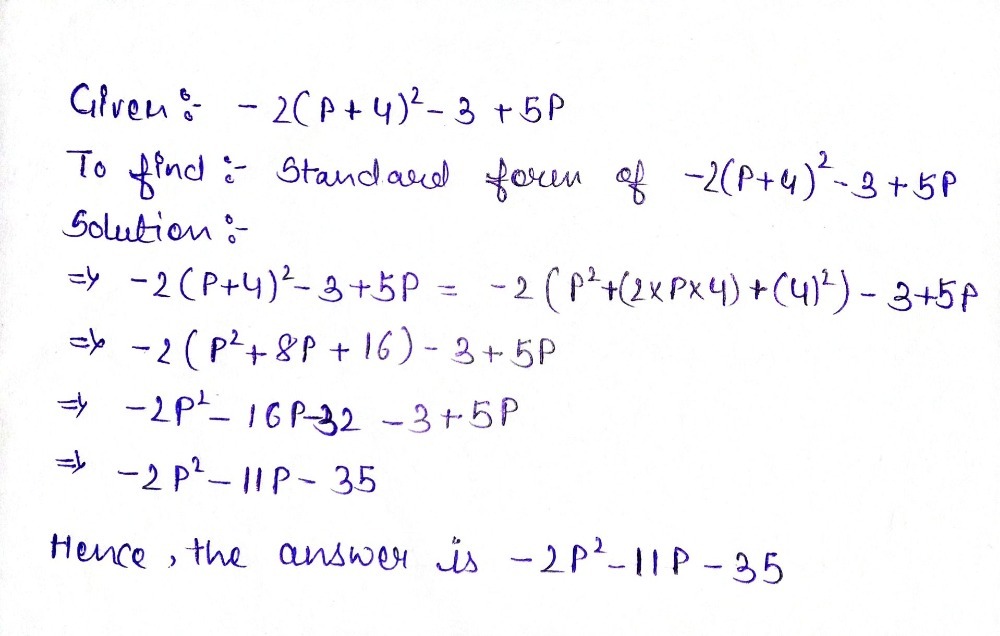 Given :- - 2(P+4)²- 3 + 5P
To find :- Standard form of -2(P+4)²- 3 + 5P
Solution :-
=> -2(P+4)²- 3 + 5P = -2(P²+(2×P×4)+(4)²) - 3+5P
=> -2(P²+ 8P + 16) - 3 + 5P
=> -2P²- 16P-32 - 3 + 5P
=> -2P²- 11P - 35
Hence, the answer is -2P²- 11P - 35